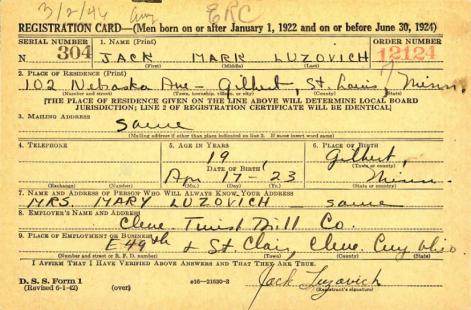 3/2/44 ERC
REGISTRATION CARD—(Men born on or after January 1, 1922 and on or before June 30, 1924)
SERIAL NUMBER 1. NAME (Print) ORDER NUMBER
N 304 JACK MARK LUZOVICH 12124
(First) (Middle) (Last)
2. PLACE OF RESIDENCE (Print)
102 Nebraska Ave - Gilbert, St Louis, Minn.
(Number and street) (Town, township, village, or city) (County) (State)
[THE PLACE OF RESIDENCE GIVEN ON THE LINE ABOVE WILL DETERMINE LOCAL BOARD
JURISDICTION; LINE 2 OF REGISTRATION CERTIFICATE WILL BE IDENTICAL]
3. MAILING ADDRESS
same
(Mailing address if other than place indicated on line 2. If same insert word same)
4. TELEPHONE 5. AGE IN YEARS 6. PLACE OF BIRTH
19 Gilbert,
DATE OF BIRTH (Town or county)
Apr 17 - 23 Minn.
(Exchange) (Number) (Mo.) (Day) (Yr.) (State or country)
7. NAME AND ADDRESS OF PERSON WHO WILL ALWAYS KNOW YOUR ADDRESS
MRS. MARY LUZOVICH same
8. EMPLOYER'S NAME AND ADDRESS
Cleve. Twist Drill Co.
9. PLACE OF EMPLOYMENT OR BUSINESS
E 49th & St Clair, Cleve. Cuy Ohio
(Number and street or R. F. D. number) (Town) (County) (State)
I AFFIRM THAT I HAVE VERIFIED ABOVE ANSWERS AND THAT THEY ARE TRUE.
D. S. S. Form 1
(Revised 6-1-42) (over) e16—21630-2 Jack Luzovich
(Registrant's signature)